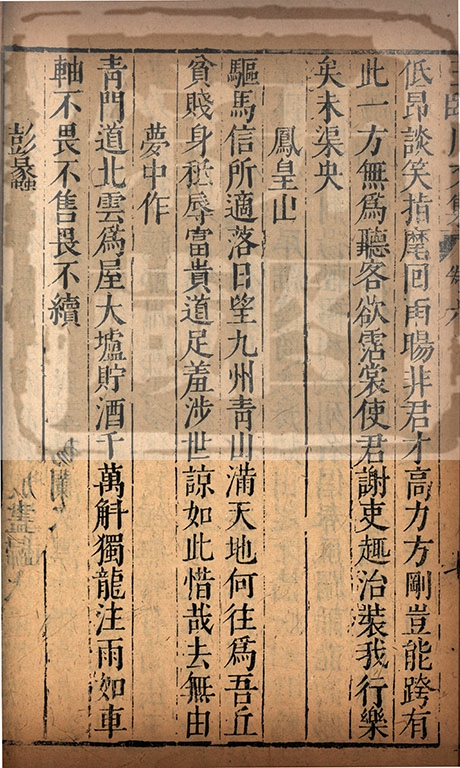 低昂談笑指麾回雨暘非君才高力方剛豈能跨有
此一方無為聽客欲霑裳使君謝吏趣治裝我行樂
矣未渠央
鳳皇山
驅馬信所適落日望九州青山滿天地何往為吾丘
貧賤身秪辱富貴道足羞涉世諒如此惜哉去無由
夢中作
青門道北雲為屋大壚貯酒千萬斛獨龍注雨如車
軸不畏不售畏不續
彭蠡